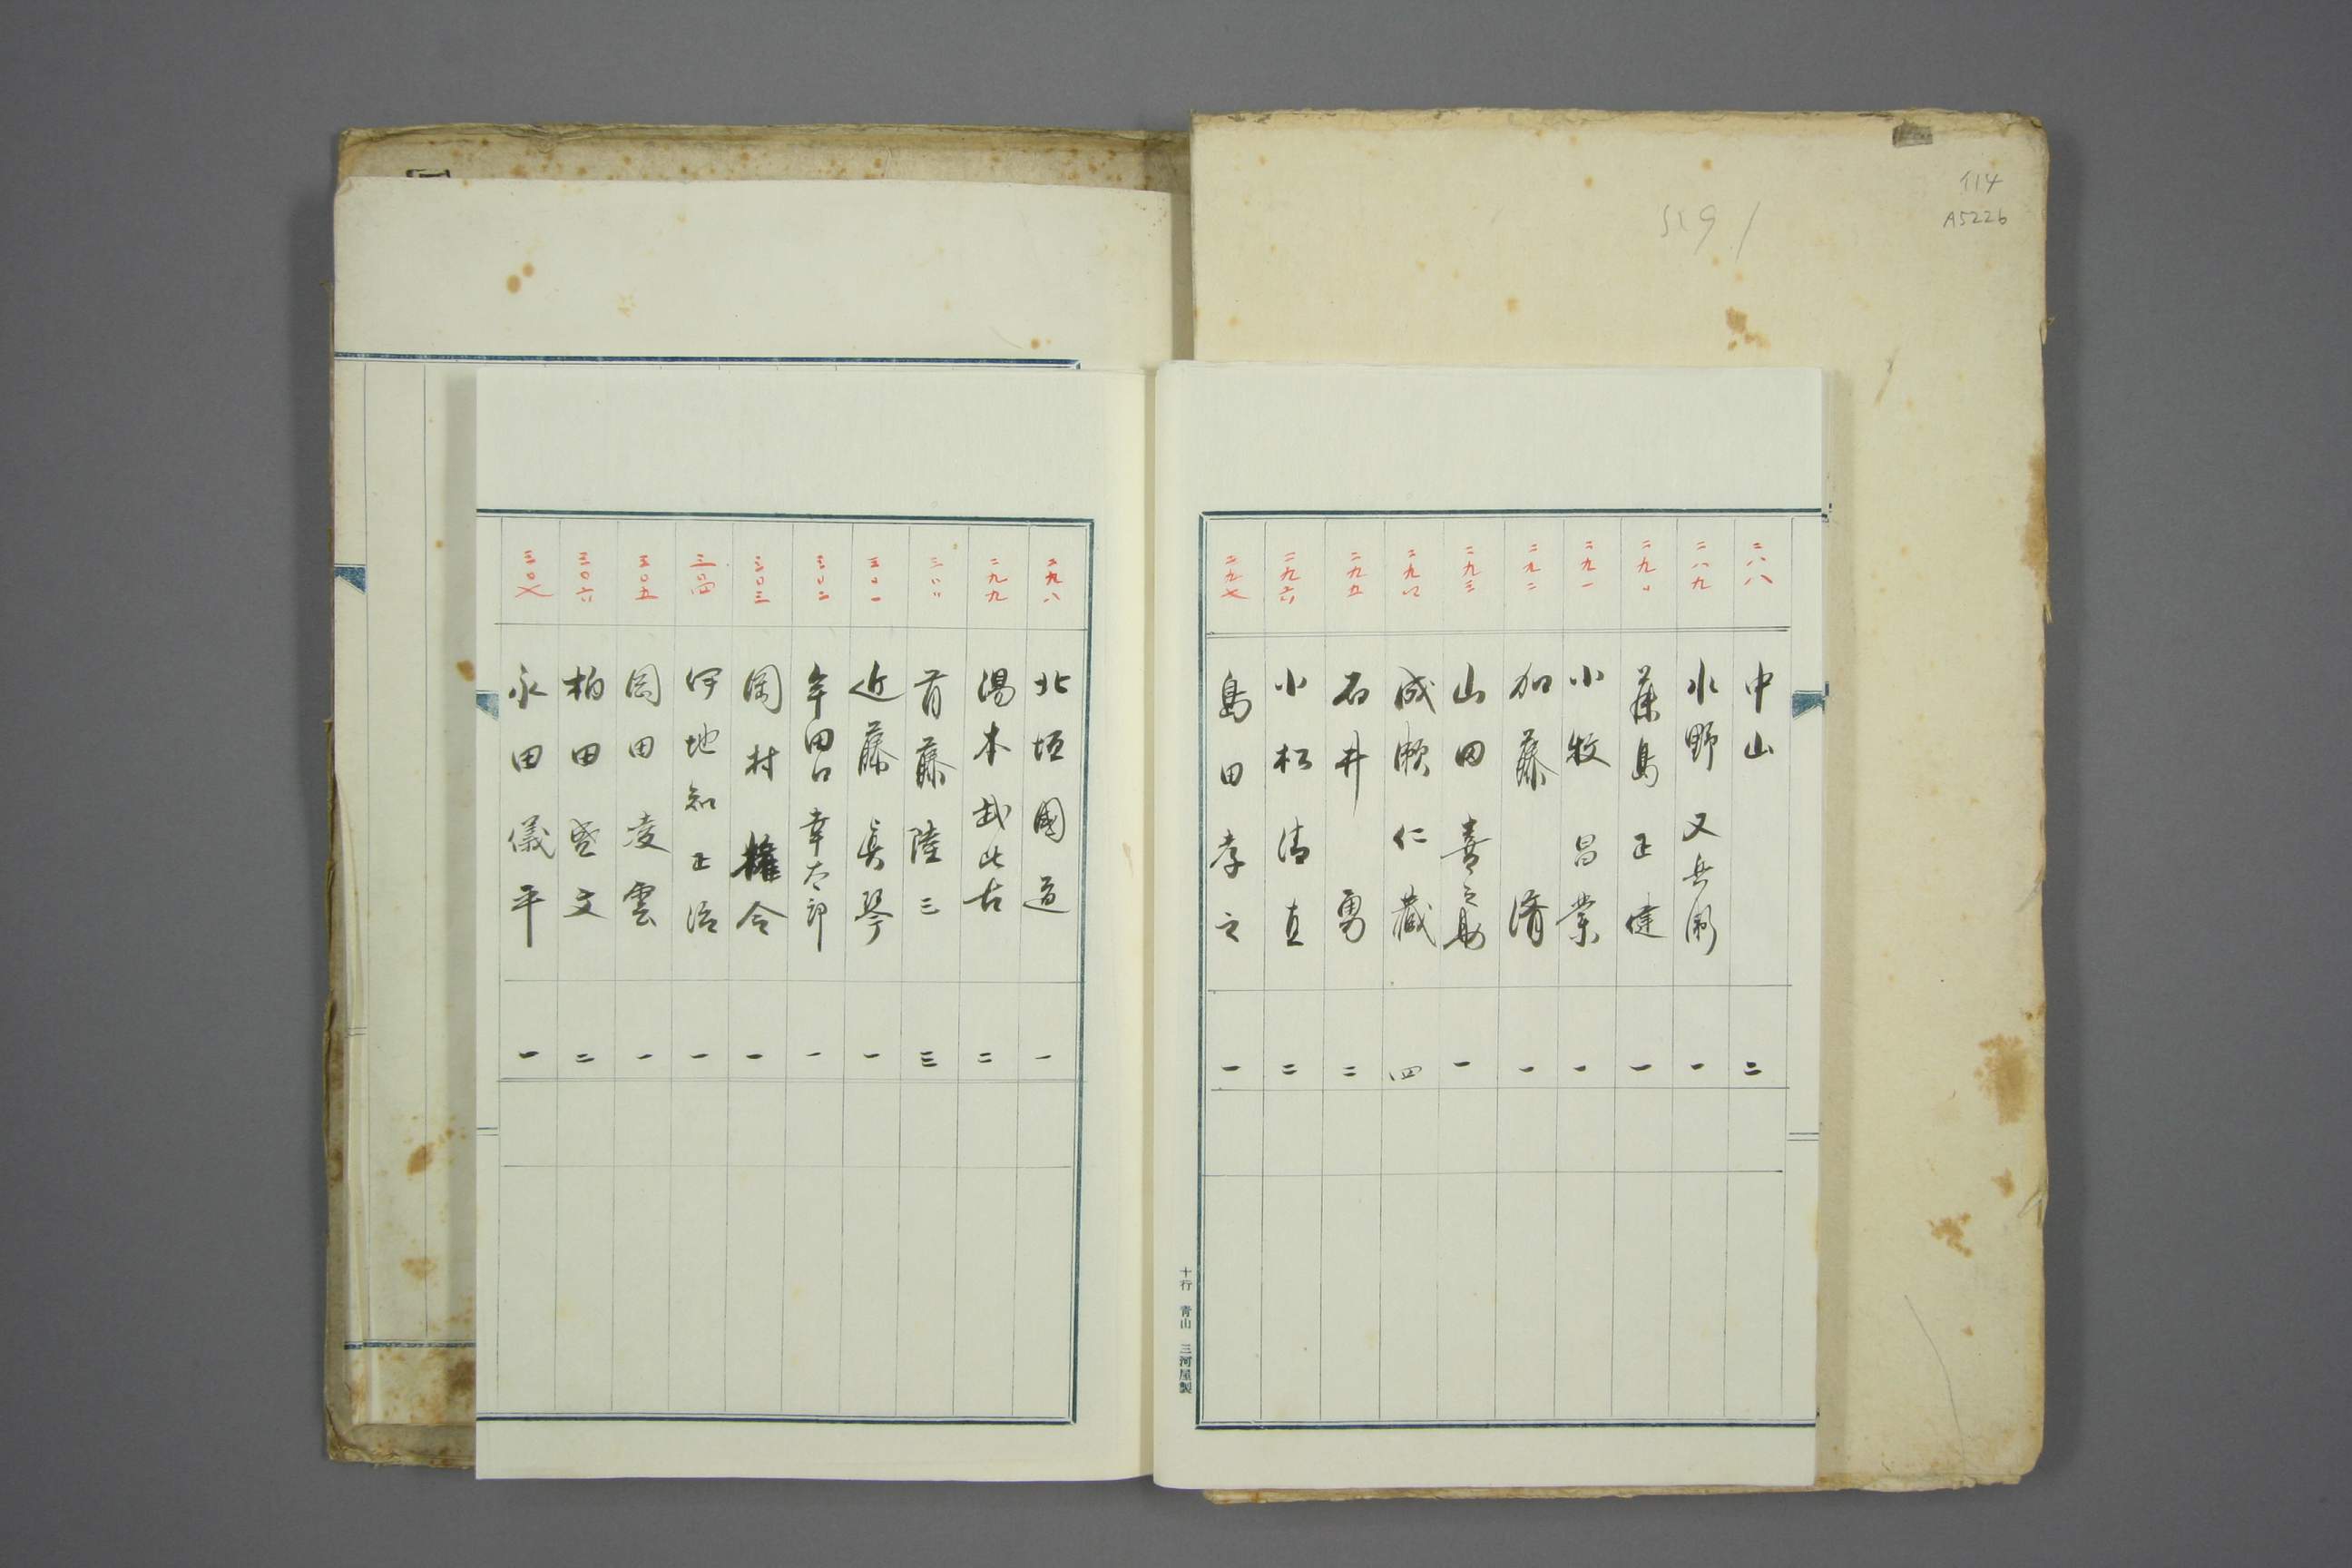 114
A5226
二八八 中山 二
二八九 水野 又兵衛 一
二九〇 藤島 正健 一
二九一 小牧 昌業 一
二九二 加藤 済 一
二九三 山田 喜之助 一
二九四 成瀬 仁蔵 四
二九五 石井 勇 二
二九六 小松 清直 二
二九七 島田 孝之 一
十行 青山 三河屋製
二九八 北垣 國道 一
二九九 湯本 武比古 二
三〇〇 首藤 陸三 三
三〇一 近藤 真琴 一
三〇二 牟田口 幸太郎 一
三〇三 岡村 権令 一
三〇四 伊地知 正治 一
三〇五 岡田 凌雲 一
三〇六 柏田 盛文 二
三〇七 永田 儀平 一